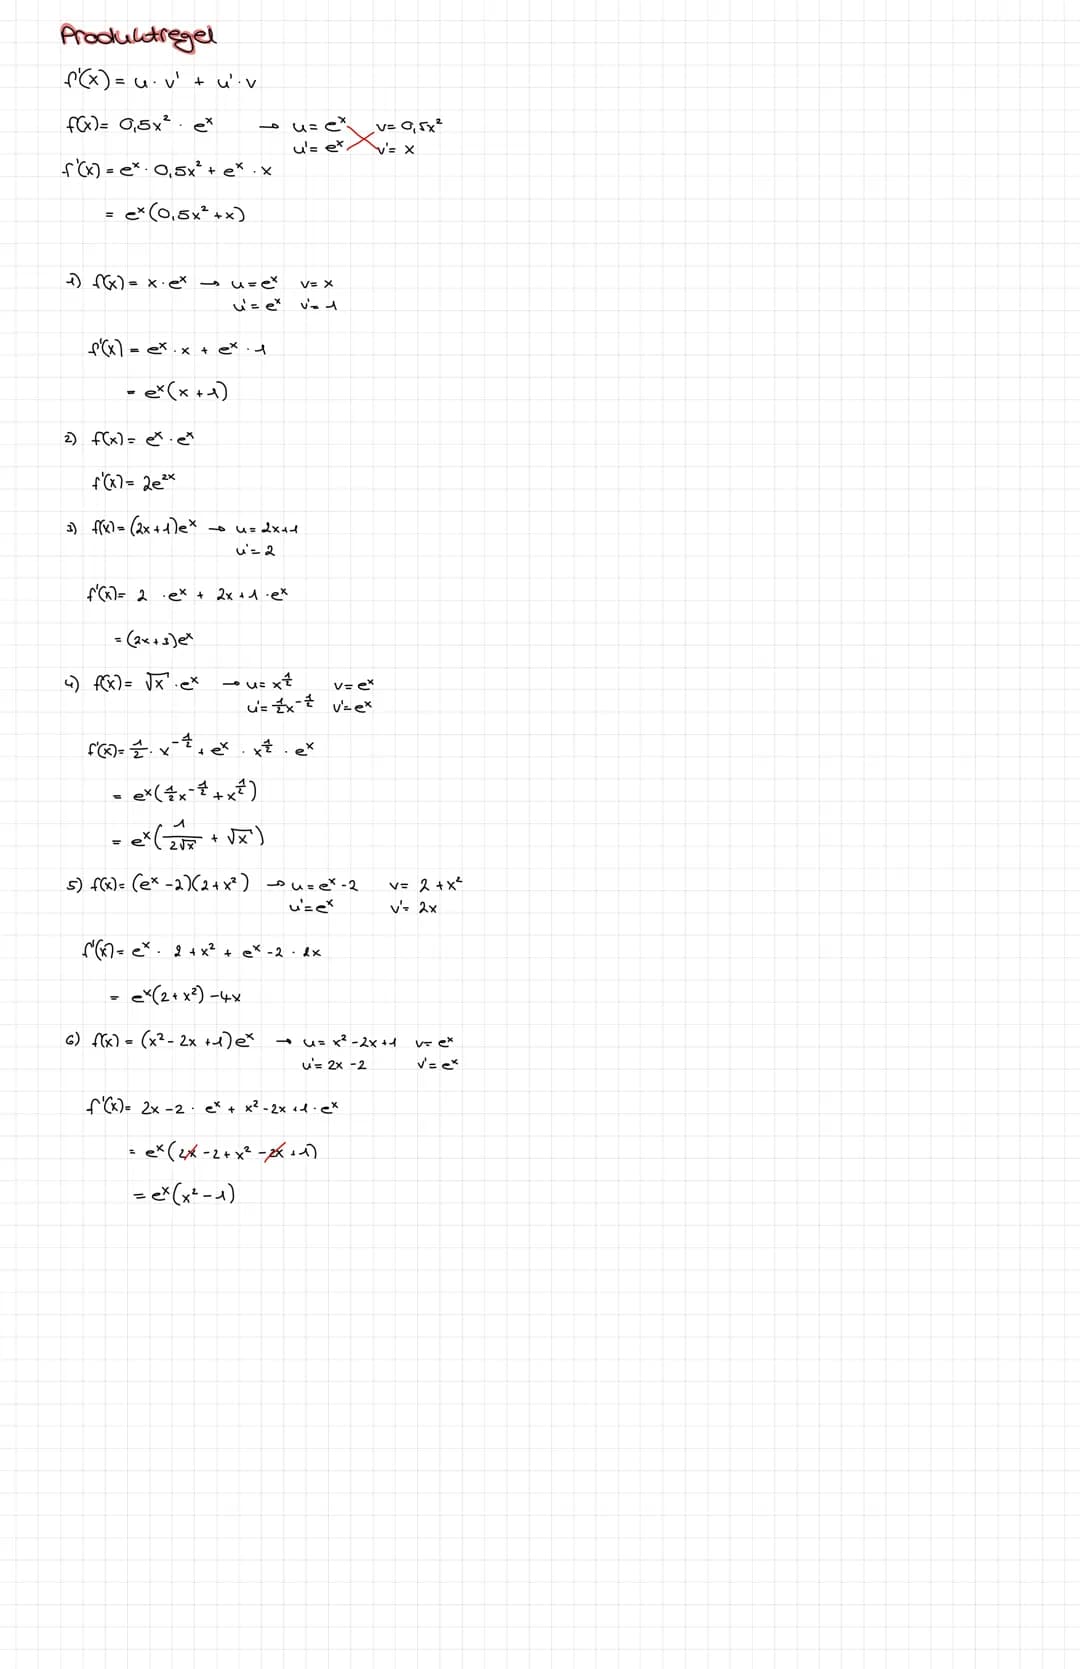 Produktregel
f'(x) = u · v' + u' · v
f(x) = 0,5x² · eˣ → u = eˣ v = 0,5x²
u' = eˣ v' = x
f'(x) = eˣ · 0,5x² + eˣ · x
= eˣ(0,5x² + x)
1) f(x) = x · eˣ → u = eˣ v = x
u' = eˣ v' = 1
f'(x) = eˣ · x + eˣ · 1
= eˣ(x + 1)
2) f(x) = eˣ · eˣ
f'(x) = 2e²ˣ
3) f(x) = (2x + 1)eˣ → u = 2x + 1
u' = 2
f'(x) = 2 · eˣ + 2x + 1 · eˣ
= (2x + 3)eˣ
4) f(x) = √x · eˣ → u = x^½ v = eˣ
u' = ½x^-½ v' = eˣ
f'(x) = ½ · x^-½ + eˣ · x^½ · eˣ
= eˣ(½x^-½ + x^½)
= eˣ(1/(2√x) + √x)
5) f(x) = (eˣ - 2)(2 + x²) → u = eˣ - 2 v = 2 + x²
u' = eˣ v' = 2x
f'(x) = eˣ · 2 + x² + eˣ - 2 · 2x
= eˣ(2 + x²) - 4x
6) f(x) = (x² - 2x + 1)eˣ → u = x² - 2x + 1 v = eˣ
u' = 2x - 2 v' = eˣ
f'(x) = 2x - 2 · eˣ + x² - 2x + 1 · eˣ
= eˣ(2x - 2 + x² - 2x + 1)
= eˣ(x² - 1)